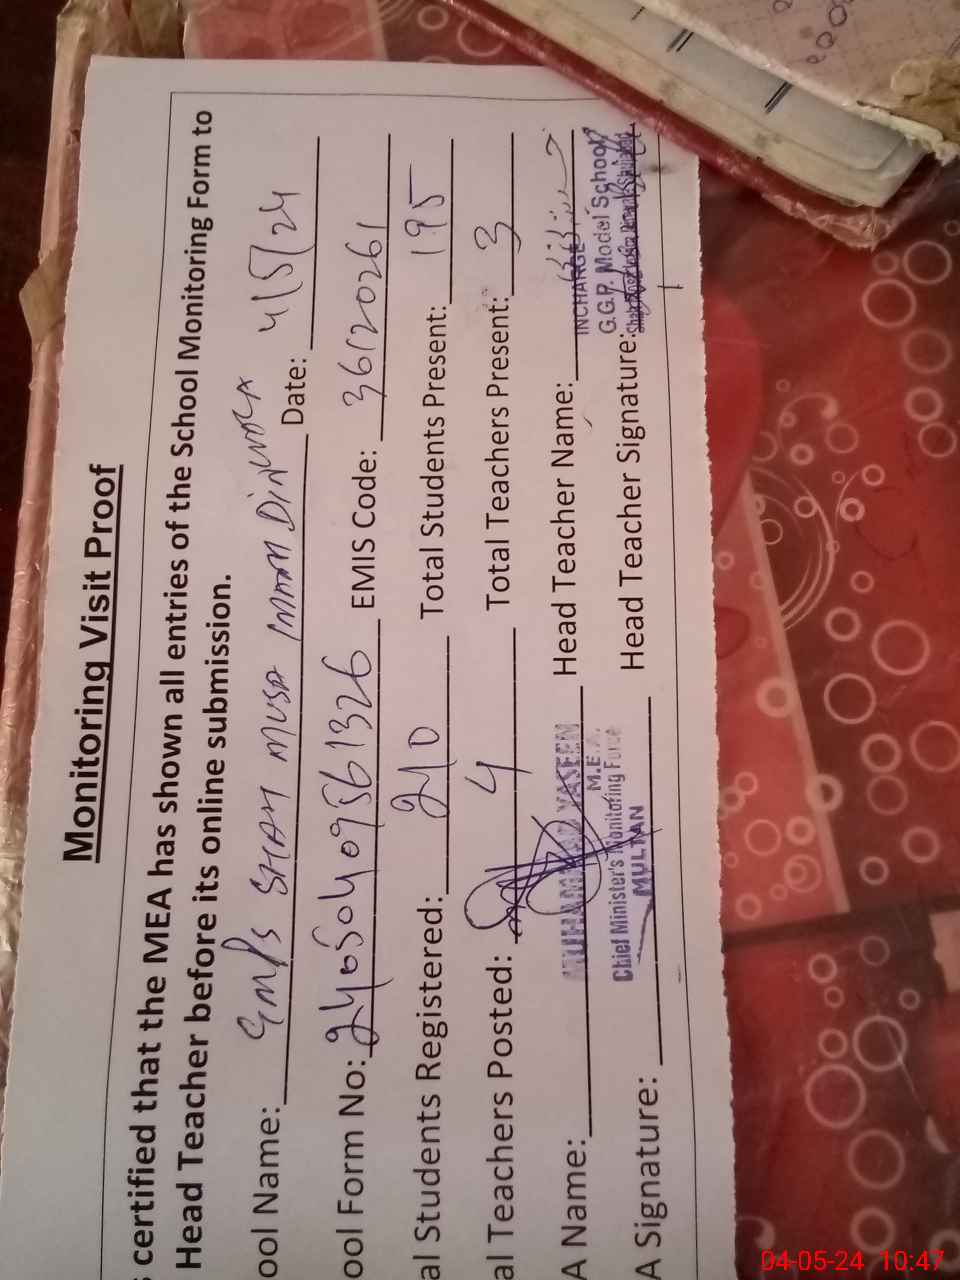 Monitoring Visit Proof
s certified that the MEA has shown all entries of the School Monitoring Form to
Head Teacher before its online submission.
ool Name: GMPS SHAH MUSA Date: 4/5/24
ool Form No: EMIS Code: 36120261
al Students Registered: 210 Total Students Present: 195
al Teachers Posted: 4 Total Teachers Present: 3
A Name: MUHAMMAD YASEEN Head Teacher Name: INCHARGE
M.E.A G.G.P. Model School
Chief Minister's Monitoring Force
MULTAN
A Signature: Head Teacher Signature:
04-05-24 10:47